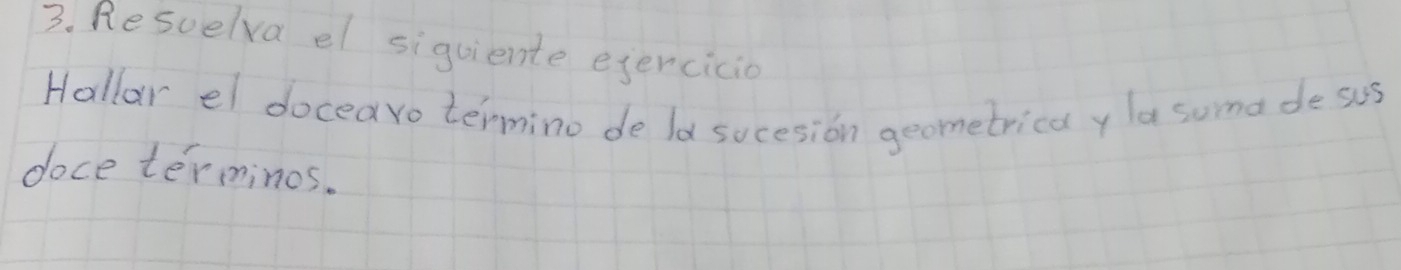 3. Resuelva el siguiente ejercicio
Hallar el doceavo término de la sucesión geometrica y la suma de sus
doce términos.